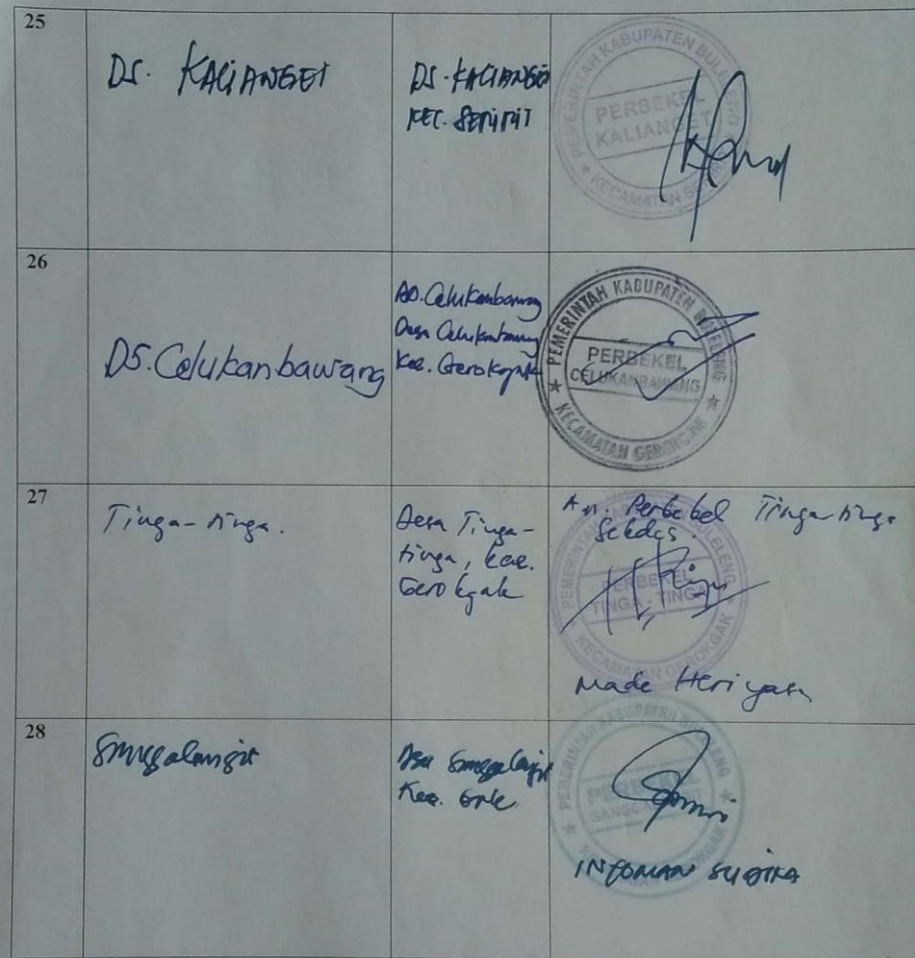 25
DS. KALIANGET
DS. KALIANGET
KEC. SERIRIT
PEMERINTAH KABUPATEN BULELENG
PERBEKEL
KALIANGET
KECAMATAN
26
DS. Celukanbawang
Celukanbawang
Desa Celukanbawang
Kec. Gerokgak
PEMERINTAH KABUPATEN BULELENG
PERBEKEL
CELUKANBAWANG
KECAMATAN GEROKGAK
27
Tinga-tinga.
Desa Tinga-
tinga, kec.
Gerokgak
A.n. Perbekel Tinga-tinga
Sekdes.
PEMERINTAH KABUPATEN BULELENG
PERBEKEL
TINGA - TINGA
KECAMATAN GEROKGAK
Made Heriyasa
28
Sanggalangit
Desa Sanggalangit
Kec. Grk
PEMERINTAH KABUPATEN BULELENG
PERBEKEL
KECAMATAN GEROKGAK
I NYOMAN SUDIRA